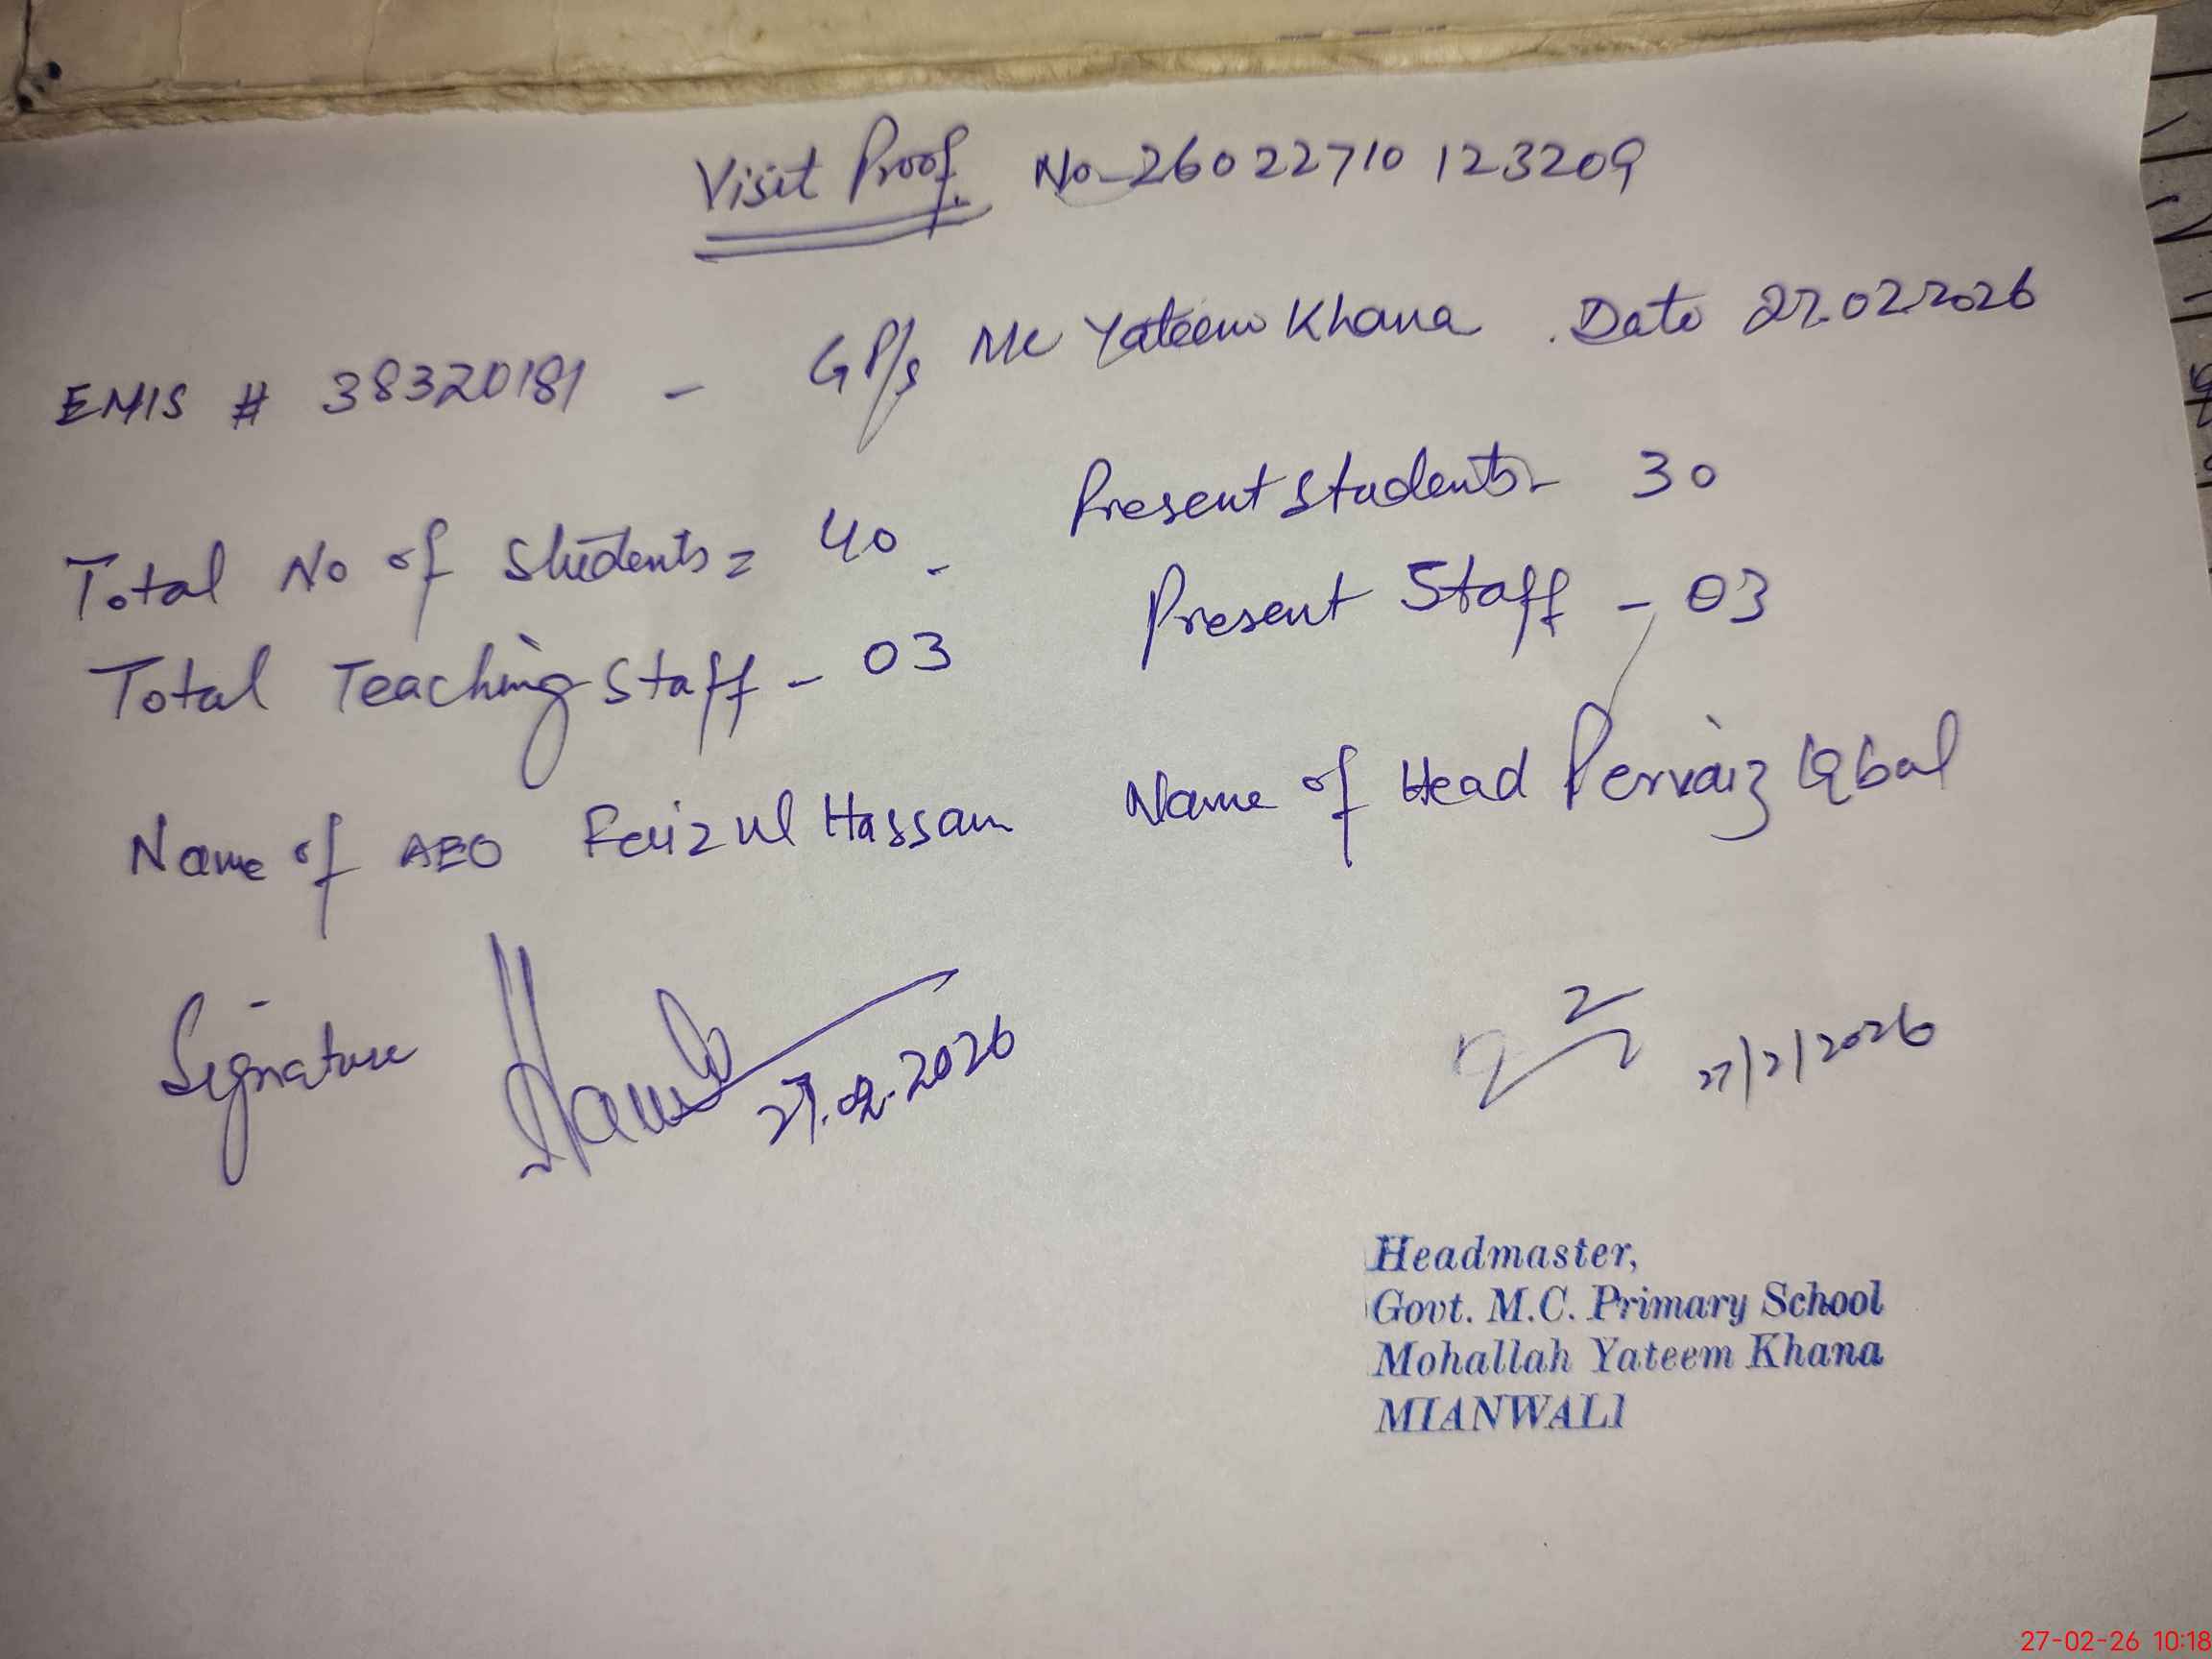 Visit Proof. No-26022710123209
EMIS # 38320181 - GP/s Mc Yateem Khana. Date 27.02.2026
Total No of Students = 40. Present Students - 30
Total Teaching Staff - 03 Present Staff - 03
Name of AEO Faizul Hassan Name of Head Pervaiz Iqbal
Signature
27.02.2026 27/2/2026
Headmaster,
Govt. M.C. Primary School
Mohallah Yateem Khana
MIANWALI
27-02-26 10:18